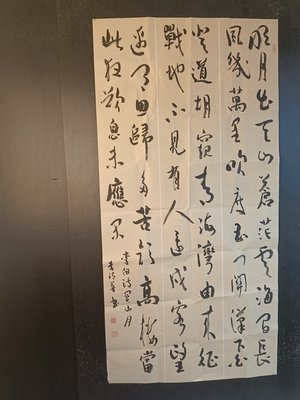 明月出天山蒼茫雲海間長
風幾萬里吹度玉門關漢下白
登道胡窺青海灣由來征
戰地不見有人還戍客望
邊色思歸多苦顏高樓當
此夜歎息未應閑
李白詩關山月
書